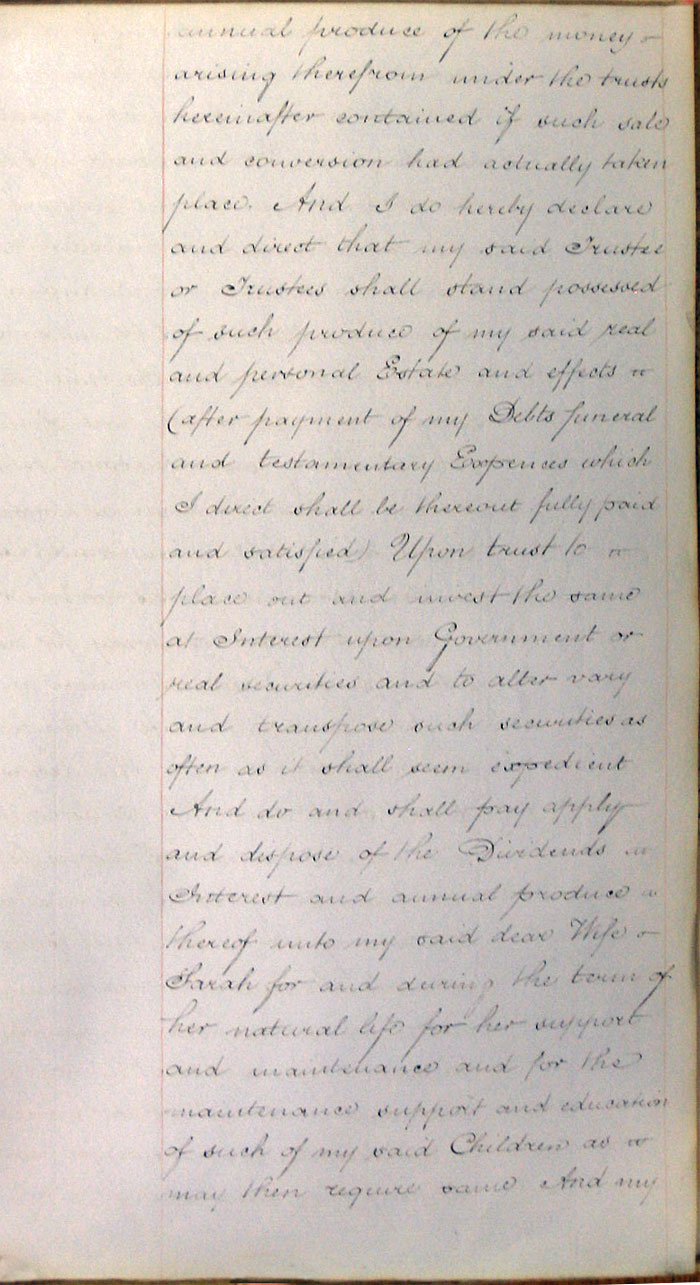 annual produce of the money
arising therefrom under the trusts
hereinafter contained if such sale
and conversion had actually taken
place. And I do hereby declare
and direct that my said Trustee
or Trustees shall stand possessed
of such produce of my said real
and personal Estate and effects
(after payment of my Debts funeral
and testamentary Expences which
I direct shall be thereout fully paid
and satisfied) Upon trust to
place out and invest the same
at Interest upon Government or
real securities and to alter vary
and transpose such securities as
often as it shall seem expedient
And do and shall pay apply
and dispose of the Dividends
Interest and annual produce
thereof unto my said dear Wife
Sarah for and during the term of
her natural life for her support
and maintenance and for the
maintenance support and education
of such of my said Children as
may then require same And my